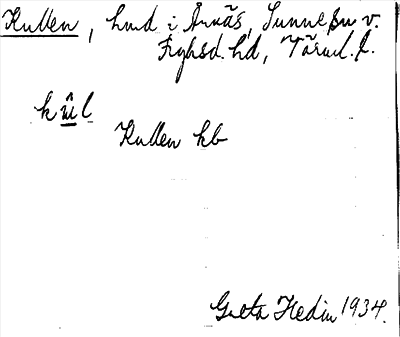 Kullen, hmd i Årnäs, Sunne sn v.
Fryksd. hd, Värml. l.
kûl
Kullen kb
Greta Hedin 1934.